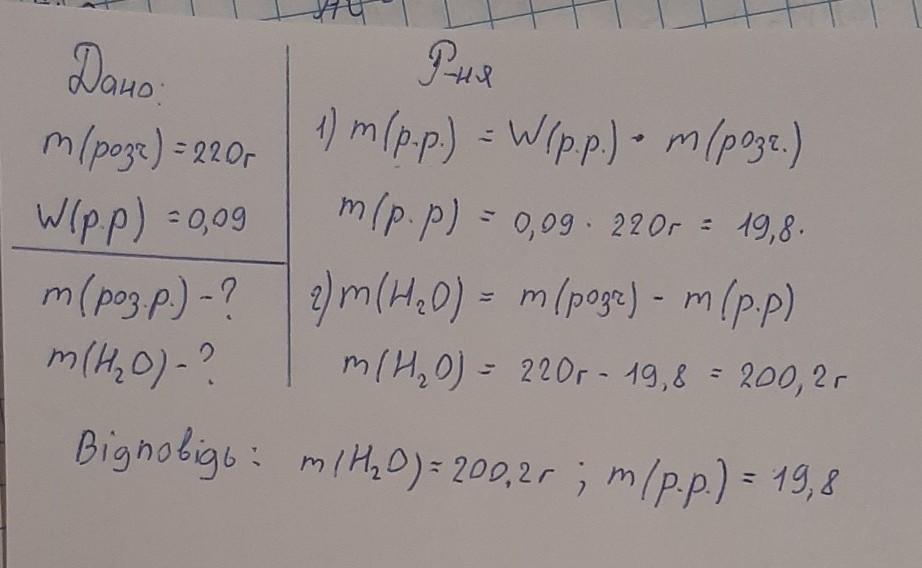 Дано:
m(розч) = 220г
W(р.р) = 0,09
m(роз.р.) - ?
m(H₂O) - ?
Р-ня
1) m(р.р.) = W(р.р.) • m(розч.)
m(р.р) = 0,09 · 220г = 19,8.
2) m(H₂O) = m(розч) - m(р.р)
m(H₂O) = 220г - 19,8 = 200,2г
Відповідь: m(H₂O) = 200,2г ; m(р.р.) = 19,8